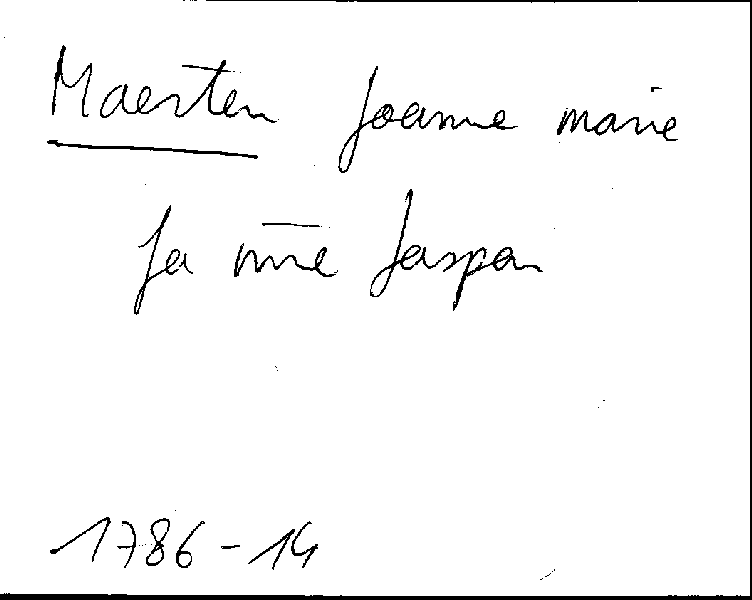 Maerten Joanne marie
fa Jaspar
1786-14